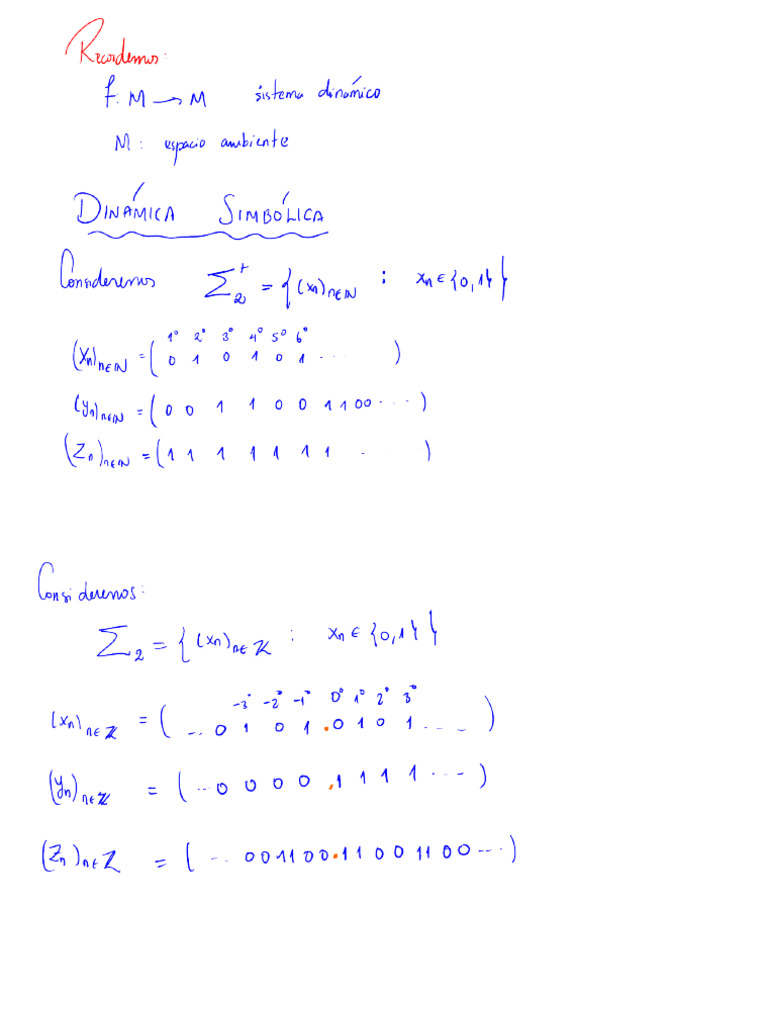 Recordemos:
f: M → M sistema dinámico
M: espacio ambiente
DINÁMICA SIMBÓLICA
Consideremos Σ₂⁺ = { (xₙ)ₙ∈ℕ : xₙ ∈ {0,1} }
1° 2° 3° 4° 5° 6°
(Xₙ)ₙ∈ℕ = ( 0 1 0 1 0 1 ... )
(yₙ)ₙ∈ℕ = ( 0 0 1 1 0 0 1 1 0 0 ... )
(Zₙ)ₙ∈ℕ = ( 1 1 1 1 1 1 1 . )
Consideremos:
Σ₂ = { (xₙ)ₙ∈ℤ : xₙ ∈ {0,1} }
-3° -2° -1° 0° 1° 2° 3°
(xₙ)ₙ∈ℤ = ( ... 0 1 0 1 . 0 1 0 1 .... )
(yₙ)ₙ∈ℤ = ( ... 0 0 0 0 . 1 1 1 1 ... )
(Zₙ)ₙ∈ℤ = ( ... 0 0 1 1 0 0 . 1 1 0 0 1 1 0 0 ... )